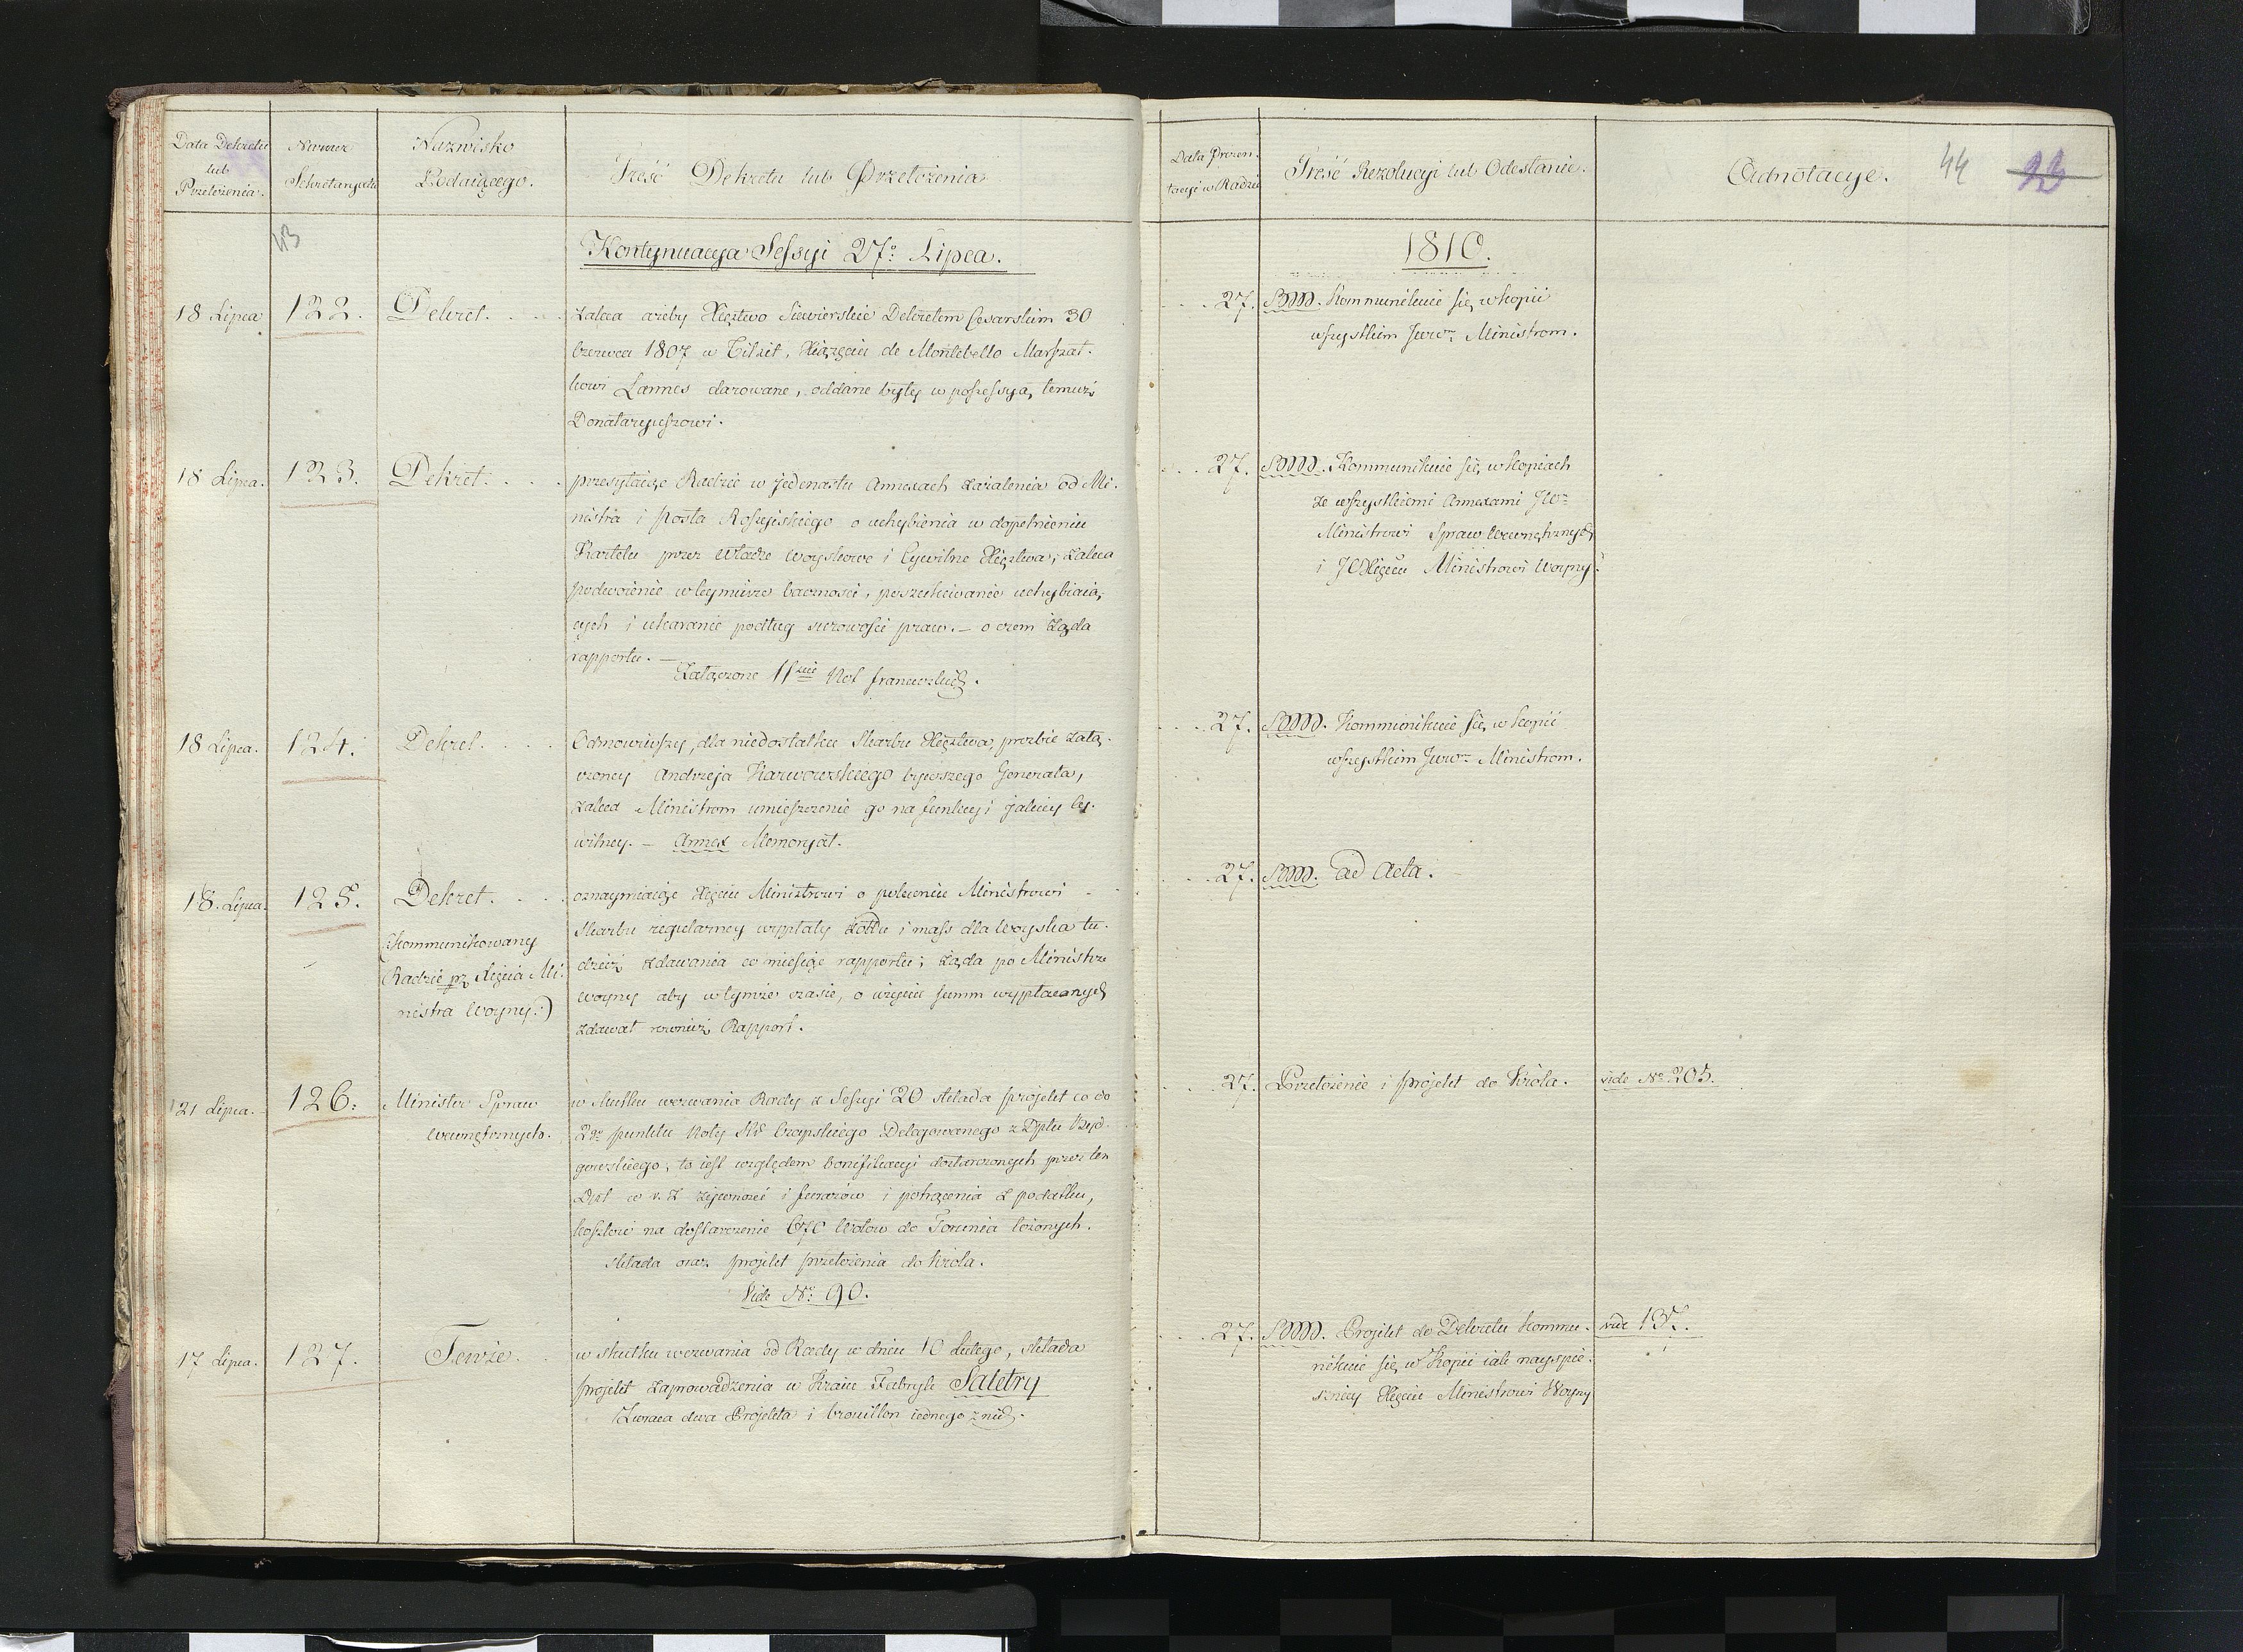 Data Dekretu
lub
Przełożenia.
Numer
Sekretaryatu
Nazwisko
Podaiącego.
Treść Dekretu lub Przełożenia
43
Kontynuacya Sessyi 27º Lipca.
18 Lipca
122.
Dekret.
zaleca ażeby Xięztwo Siewierskie Dekretem Cesarskim 30
Czerwca 1807 w Tilzit, Xiążęciu de Montebello Marszał-
kowi Lannes darowane, oddane były w possessyą temuż
Donataryuszowi.
18 Lipca.
123.
Dekret.
przesyłaiąc Radzie w jedenastu Annexach zażalenia od Mi-
nistra i Posła Rossyiskiego o uchybienia w dopełnieniu
Kartelu przez Władze Woyskowe i Cywilne Xięztwa; zaleca
podwoienie w teymierze baczności, poszukiwanie uchybiaią-
cych i ukaranie podług surowości praw. – o czem żąda
rapportu. –
Załączone 11ście Not francuzkich.
18 Lipca.
124.
Dekret.
Odmowiwszy, dla niedostatku Skarbu Xięztwa, prozbie załą-
czoney Andrzeja Karwowskiego bywszego Generała,
zaleca Ministrom umieszczenie go na funkcyi jakiey Cy-
wilney. – Annex Memoryał.
18. Lipca.
125.
Dekret.
(Kommunikowany
Radzie pz Xięcia Mi-
nistra Woyny.)
oznaymiaiąc Xięciu Ministrowi o poleceniu Ministrowi
Skarbu regularney wypłaty Żołdu i mass dla Woyska tu-
dzież zdawania co miesiąc rapportu; żąda po Ministrze
Woyny aby w tymże czasie, o użyciu summ wypłacanych
zdawał rownież Rapport.
21 Lipca.
126.
Minister Spraw
Wewnętrznych.
w skutku wezwania Rady z Sessyi 20 składa projekt co do
2go punktu Noty JW Czapskiego Delegowanego z Dptu Byd-
goskiego, to iest względem bonifikacyi dostarczonych przez ten
Dpt w r. z żywności i furażów i potrącenia z podatku,
kosztów na dostarczenie 670 Wołow do Torunia łożonych.
składa oraz projekt przełożenia do Króla.
Vide Nº 90.
17 Lipca.
127.
Tenże.
w skutku wezwania od Rady w dniu 10 Lutego, składa
projekt zaprowadzenia w Kraiu Fabryk Saletry
Zwraca dwa Projekta i brouillon iednego z nich.
Data Prezen-
tacyi w Radzie
Treść Rezolucyi lub Odesłanie.
Odnotacye.
44
23
1810.
27.
Kommunikuie się w kopii
wszystkim Jww Ministrom.
27.
Kommunikuie się w kopiach
ze wszystkiemi Annexami JW
Ministrowi Spraw Wewnętrznych
i JOXięciu Ministrowi Woyny.
27.
Kommunikuie się w kopii
wszystkim Jww Ministrom.
27.
ad Acta.
27.
Przełożenie i projekt do Króla.
vide Nº 205.
27.
Projekt do Dekretu kommu-
nikuie się w Kopii iak nayspie-
szniey Xięciu Ministrowi Woyny
vide 137.